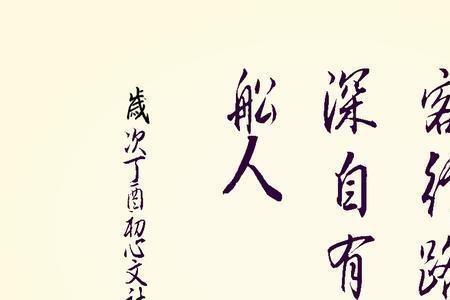 客行路
深自有
船人
歲次丁酉初心文社